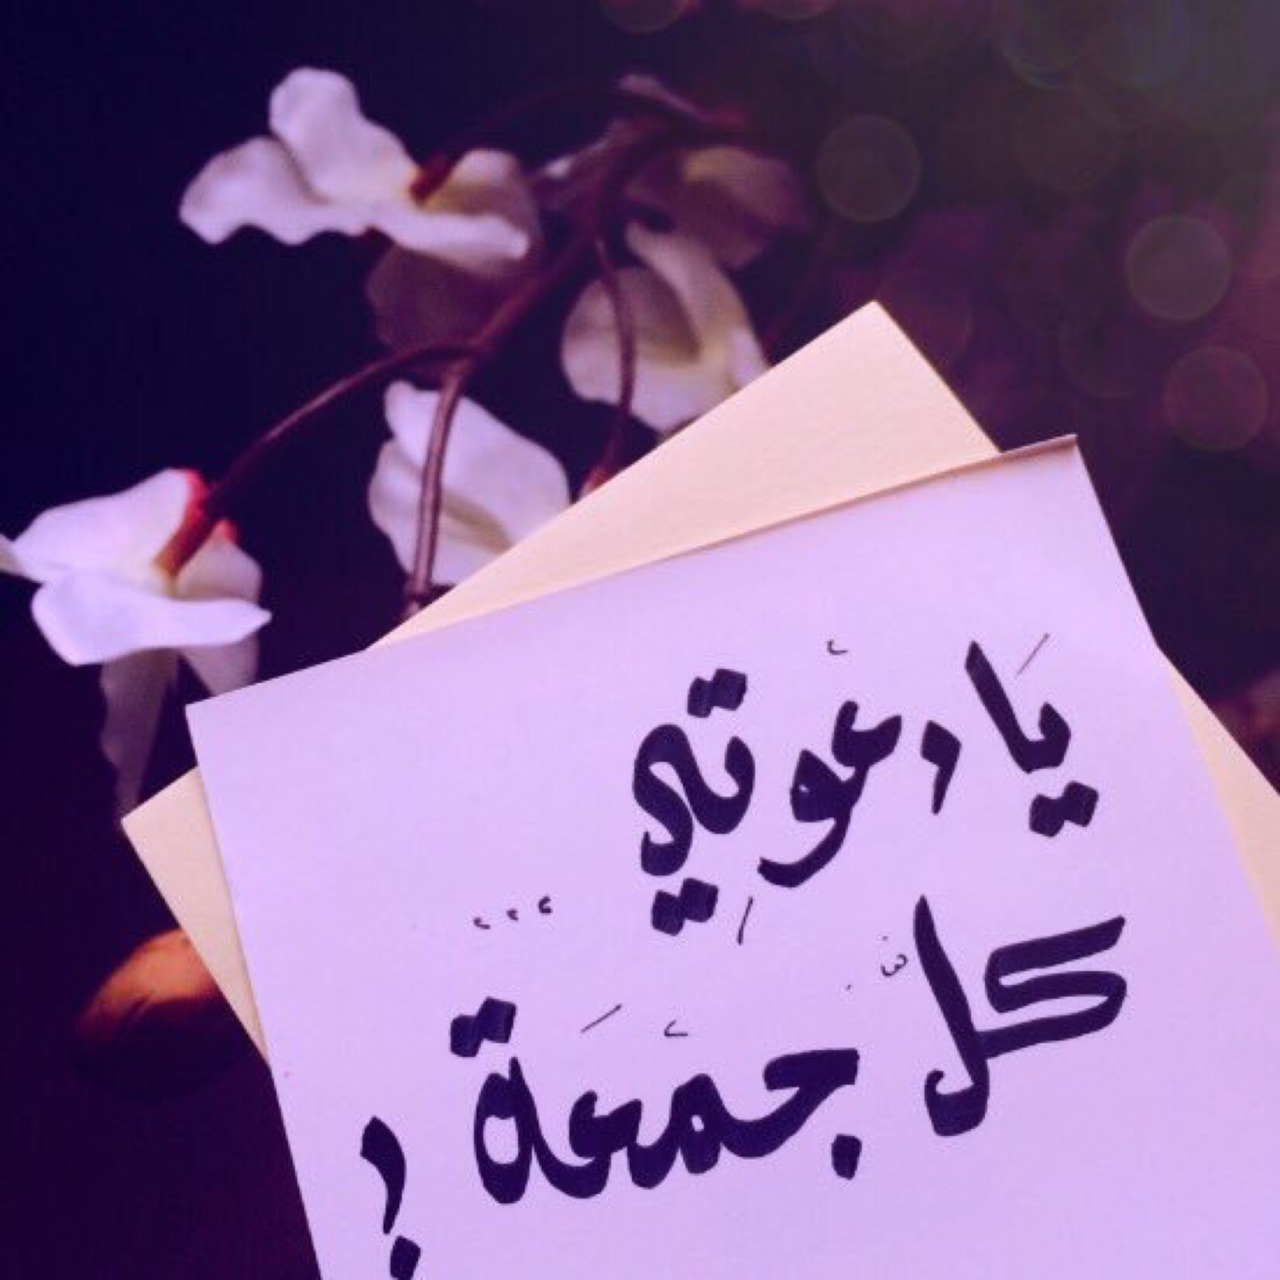 يَا دعْوتِي
كلّ جمْعَة !